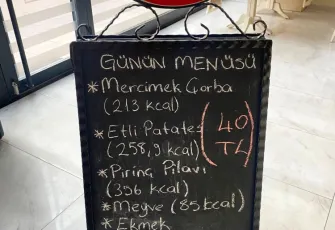 GÜNÜN MENÜSÜ
*Mercimek Çorba
(213 kcal)
*Etli Patates
(258,9 kcal)
(40
TL)
*Pirinç Pilavı
(356 kcal)
*Meyve (85 kcal)
*Ekmek